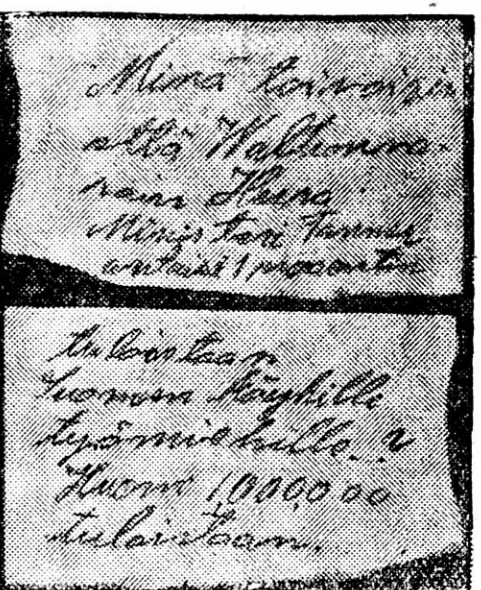 Minä toivoisin
että Waltionva-
rain Herra
Ministeri Tanner
antaisi 1 prosentin
tuloistaan
Suomen köyhille
työmiehille. ?
Huom 1,000,000
tuloistaan.